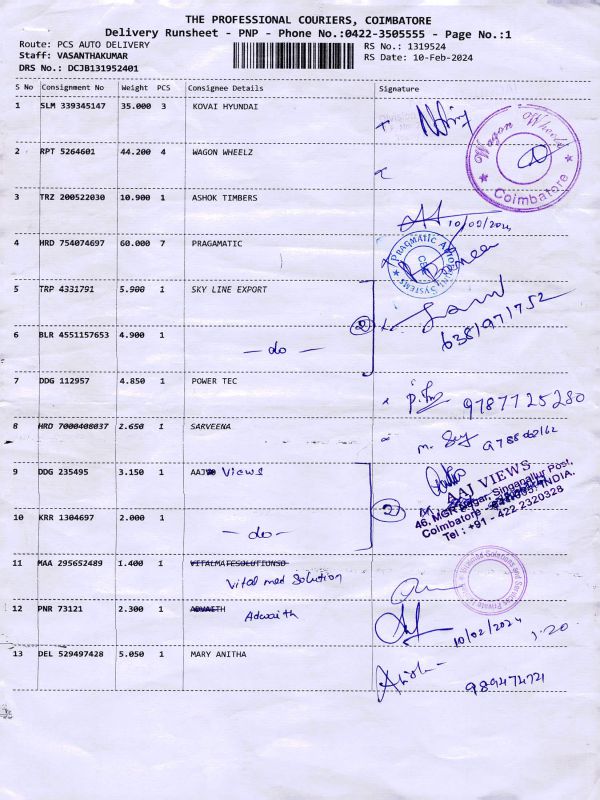 THE PROFESSIONAL COURIERS, COIMBATORE
Delivery Runsheet - PNP - Phone No.:0422-3505555 - Page No.:1
Route: PCS AUTO DELIVERY
RS No.: 1319524
Staff: VASANTHAKUMAR
RS Date: 10-Feb-2024
DRS No.: DCJB131952401
S No Consignment No Weight PCS Consignee Details Signature
1 SLM 339345147 35.000 3 KOVAI HYUNDAI
Wagon Wheels
Coimbatore
2 RPT 5264601 44.200 4 WAGON WHEELZ
3 TRZ 200522030 10.900 1 ASHOK TIMBERS
10/02/2024
4 HRD 754074697 60.000 7 PRAGAMATIC
PRAGMATIC
SYSTEMS
CBE
5 TRP 4331791 5.900 1 SKY LINE EXPORT
2
6381971752
6 BLR 4551157653 4.900 1
— do —
7 DDG 112957 4.850 1 POWER TEC
9787725280
8 HRD 7000408037 2.650 1 SARVEENA
9 DDG 235495 3.150 1 AAJ Views
2
AAJ VIEWS
46, MGR Nagar, Singanallur Post,
Coimbatore INDIA.
Tel : +91 - 422 2320328
10 KRR 1304697 2.000 1
— do —
11 MAA 295652489 1.400 1 VITALMATESOLUTIONSO
Vital med Solution
Solutions and Services Private
12 PNR 73121 2.300 1 ADVAITH
Adwaith
10/02/2024 1.20
13 DEL 529497428 5.050 1 MARY ANITHA